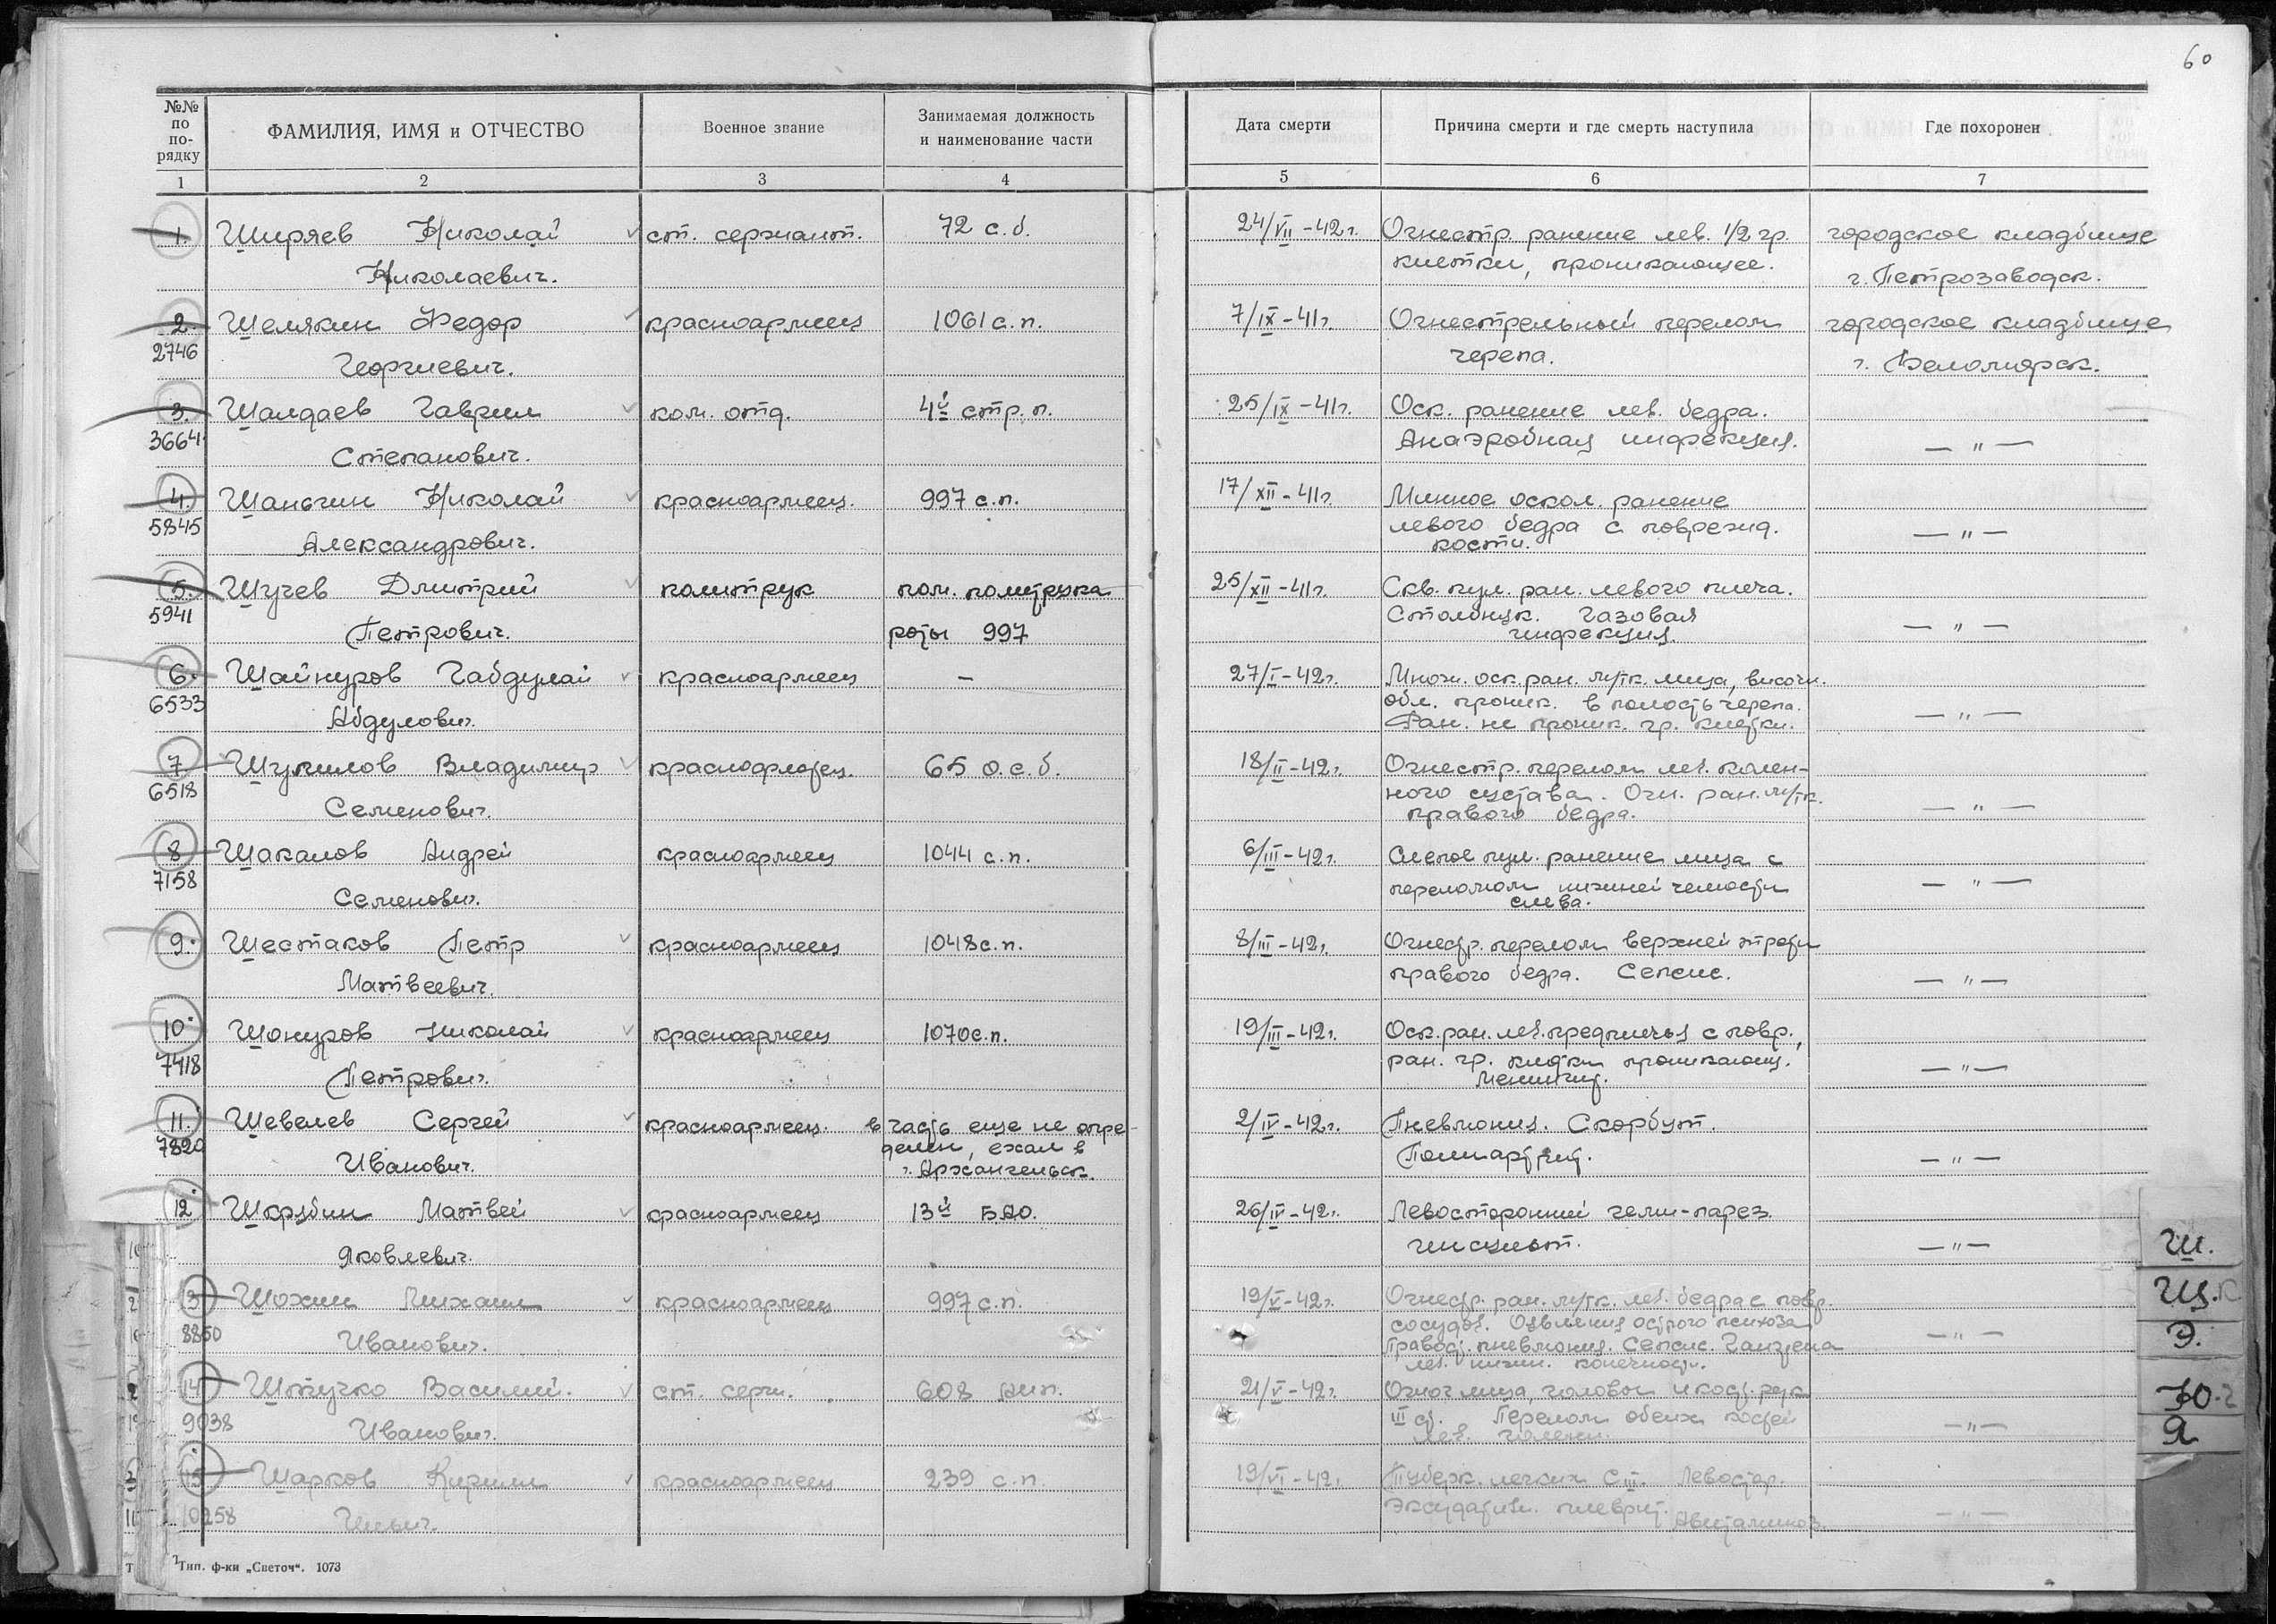 60
№№ по по- рядку
ФАМИЛИЯ, ИМЯ и ОТЧЕСТВО
Военное звание
Занимаемая должность
и наименование части
Дата смерти
Причина смерти и где смерть наступила
Где похоронен
1 2 3 4 5 6 7
1. Ширяев Николай ст. сержант. 72 с.б. 24/VII-42г. Огнестр. ранение лев. 1/2 гр. городское кладбище
Николаевич. клетки, проникающее. г. Петрозаводск.
2. Шемякин Федор красноармеец 1061 с.п. 7/IX-41г. Огнестрельный перелом городское кладбище
2746 Георгиевич. черепа. г. Беломорск.
3. Шалдаев Гаврил ком. отд. 4й стр. п. 25/IX-41г. Оск. ранение лев. бедра.
3664 Степанович. Анаэробная инфекция. — " —
4. Шаньгин Николай красноармеец. 997 с.п. 17/XII-41г. Минное оскол. ранение
5845 Александрович. левого бедра с поврежд. — " —
кости.
5. Шучев Дмитрий политрук пом. политрука 25/XII-41г. Скв. пул. ран. левого плеча.
5941 Петрович. роты 997 Столбняк. Газовая — " —
инфекция.
6. Шайнуров Габдулай красноармеец — 27/I-42г. Множ. оск. ран. м/тк. лица, височн.
6533 Абдулович. обл. проник. в полость черепа.
Ран. не проник. гр. клетки. — " —
7 Шумилов Владимир краснофлотец. 65 о.с.б. 18/II-42г. Огнестр. перелом лев. колен-
6518 Семенович. ного сустава. Огн. ран. м/тк. — " —
правого бедра.
8 Шакалов Андрей красноармеец 1044 с.п. 6/III-42г. Слепое пул. ранение лица с
7158 Семенович. переломом нижней челюсти — " —
слева.
9. Шестаков Петр красноармеец 1048 с.п. 8/III-42г. Огнестр. перелом верхней трети
Матвеевич. правого бедра. Сепсис. — " —
10. Шокуров Николай красноармеец 1070 с.п. 19/III-42г. Оск. ран. лев. предплечья с повр.,
7418 Петрович. ран. гр. клетки проникающ. — " —
Менингит.
11. Шевелев Сергей красноармеец. в часть еще не опре- 2/IV-42г. Пневмония. Скорбут.
7820 Иванович. делен, ехал в Полиартрит. — " —
г. Архангельск.
12 Шкрубин Матвей красноармеец 13й БАО. 26/IV-42г. Левосторонний геми-парез.
Яковлевич. — " —
13 Шохин Михаил красноармеец 997 с.п. 19/V-42г. Огнестр. ран. м/тк. лев. бедра с повр.
8850 Иванович. сосудов. острого психоза
Правост. пневмония. Сепсис. Гангрена — " —
лев. нижн. конечности.
14 Штучко Василий. ст. серж. 608 21/V-42г. Ожог лица, головы и рук
9038 Иванович. III ст. Перелом обеих костей — " —
лев. голени.
15 Шарков Кирилл красноармеец 239 с.п. 19/VI-42г. Туберк. легких СIII. Левостор.
10258 Ильич. экссудативн. плеврит. — " —
Авитаминоз.
Ш.
Щ.
Э.
Ю.
Я
Тип. ф-ки „Светоч“. 1073